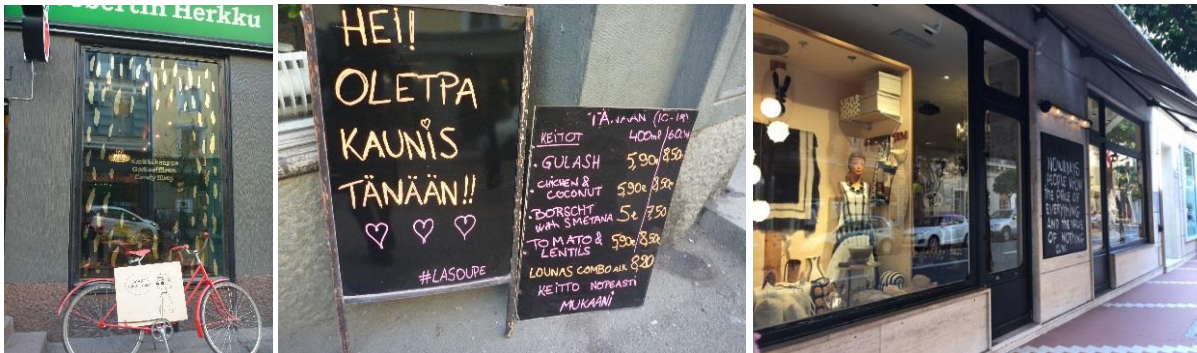 obertin Herkku
Karkkikauppa
Godisaffären
Candy Shop
HEI!
OLETPA
KAUNIS
TÄNÄÄN!!
#LASOUPE
TÄNÄÄN (10-18)
KEITOT 400ml/600ml
• GULASH 5,90e/8,50e
• CHICKEN & COCONUT 5,90e/8,50e
• BORSCHT with SMETANA 5e/7,50
TOMATO & LENTILS 5,90e/8,50e
LOUNAS COMBO ALK 8,90
KEITTO NOPEASTI
MUKAANI
NOWADAYS
PEOPLE KNOW
THE PRICE OF
EVERYTHING
AND THE VALUE
OF NOTHING